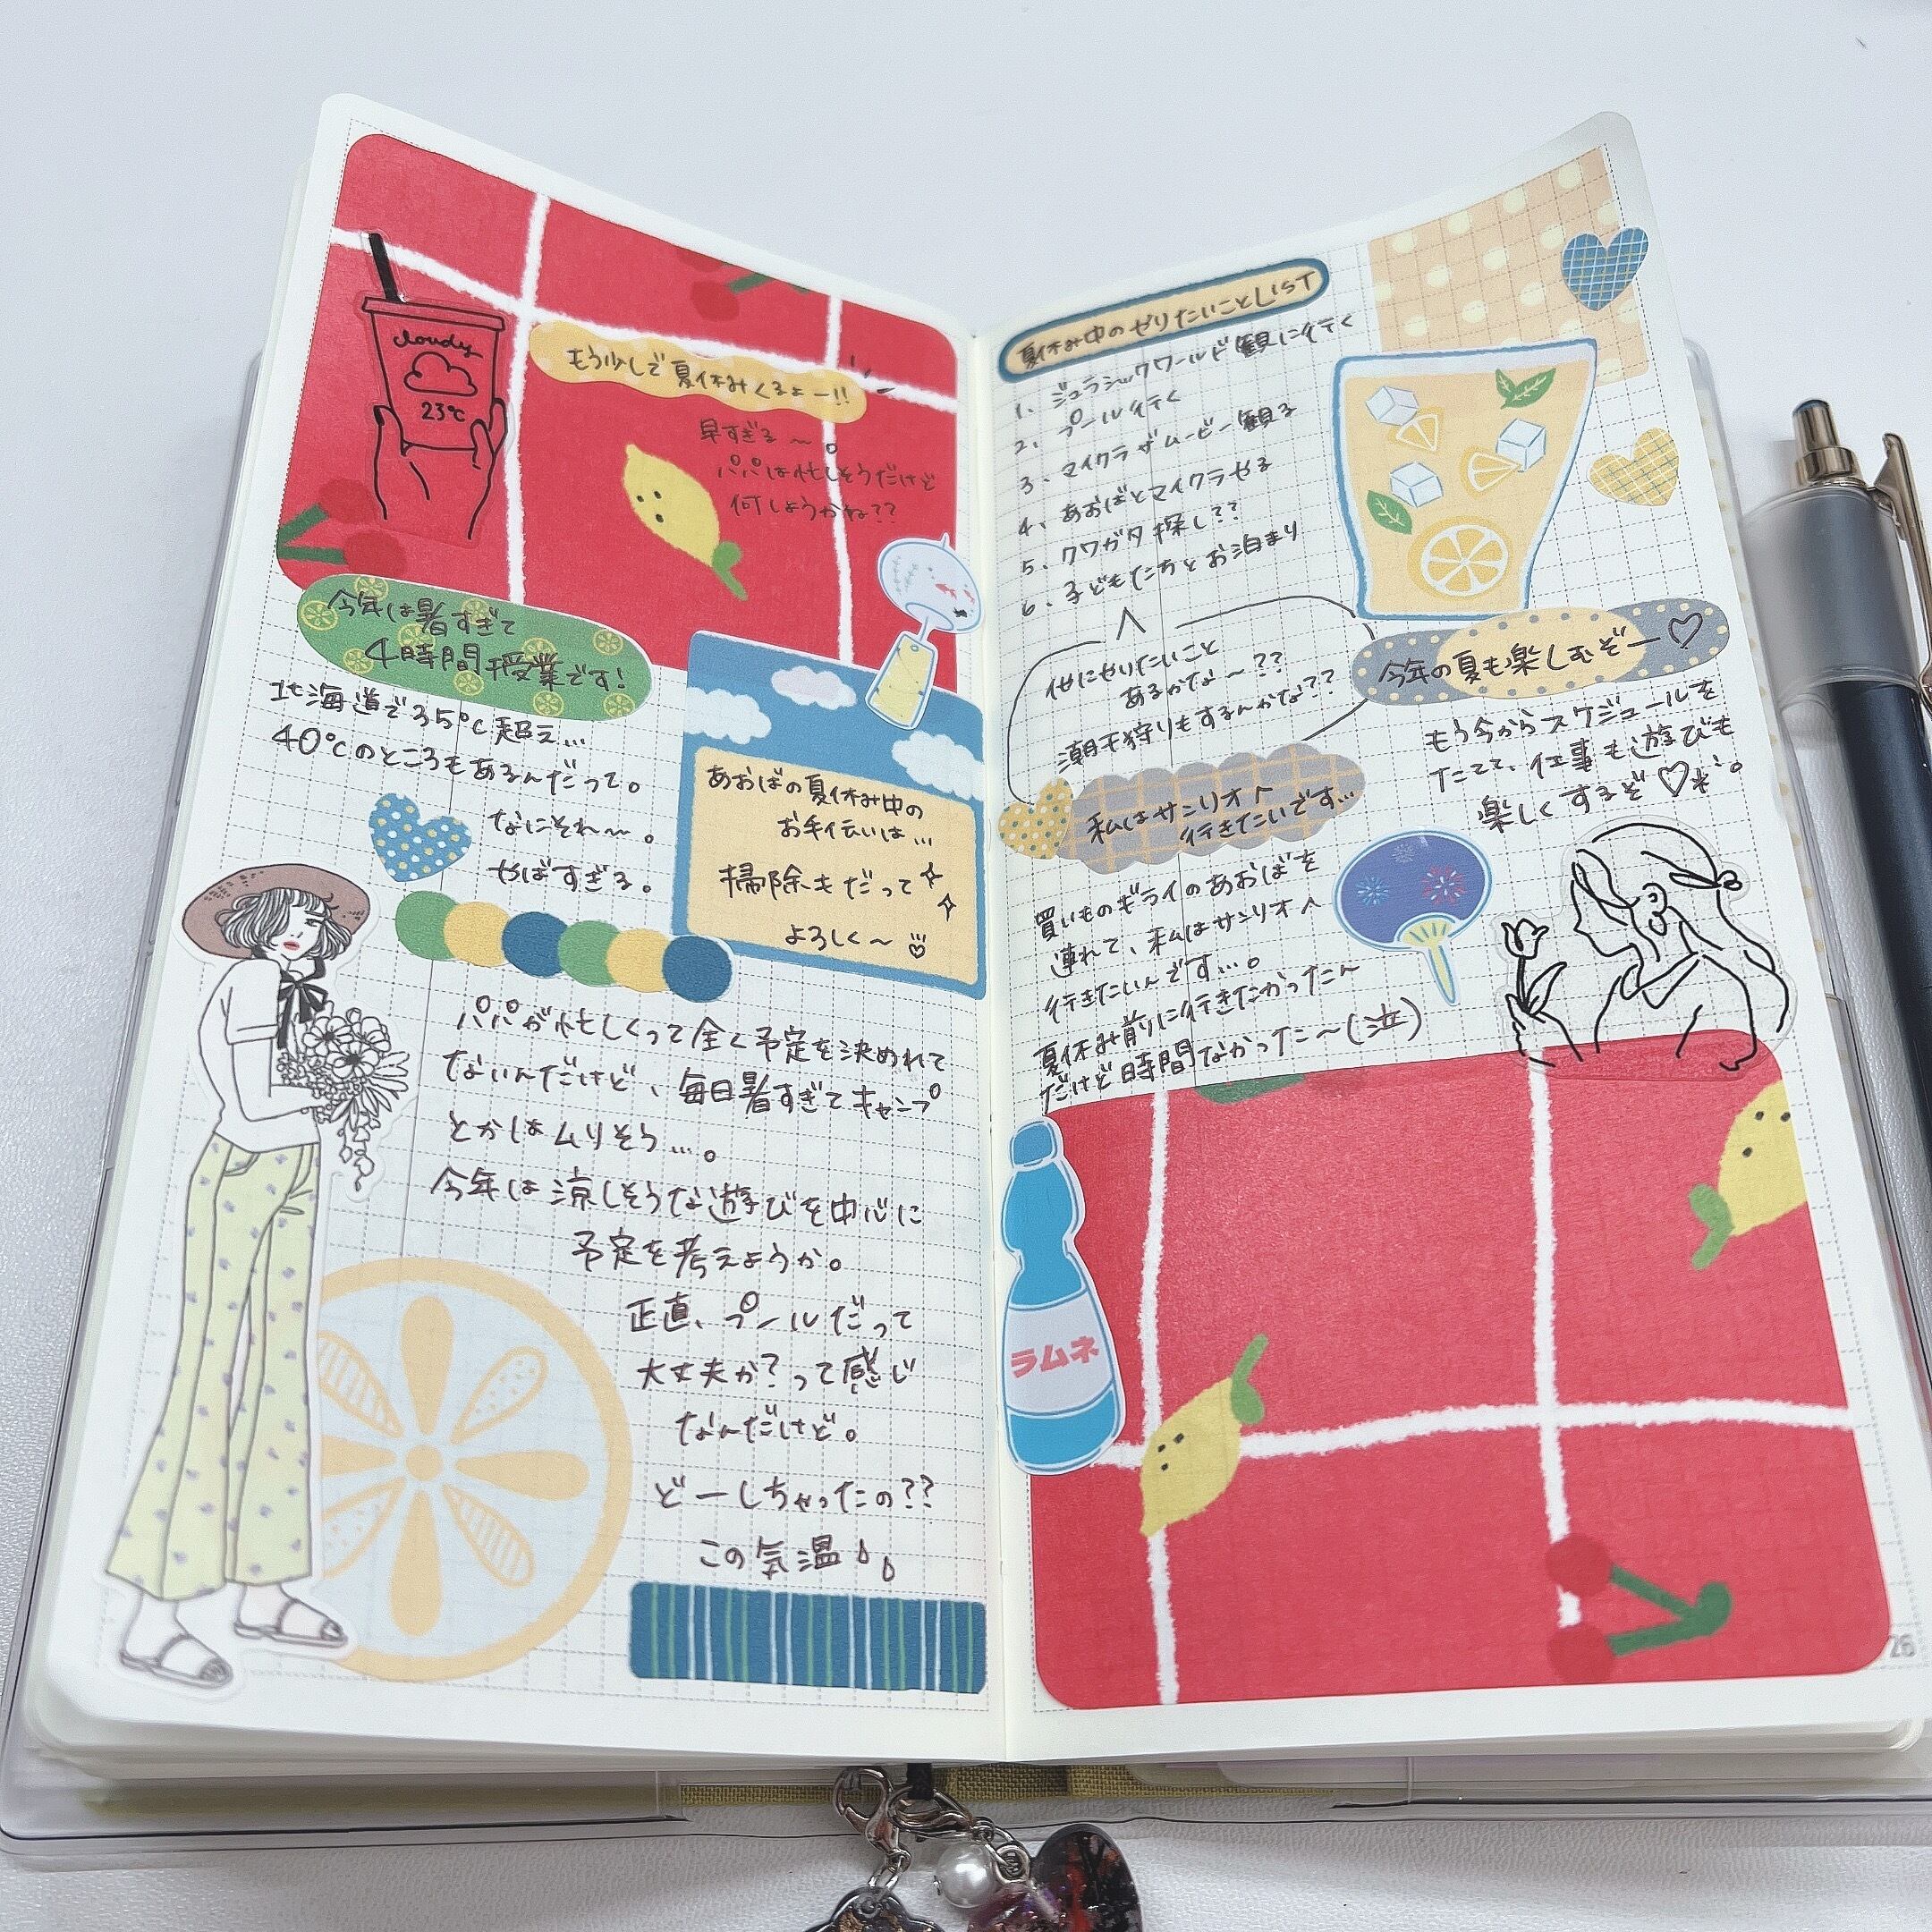 cloudy
23℃
もう少しで夏休みくるよー!!
早すぎる〜。
パパは忙しそうだけど
何しようかね??
今年は暑すぎて
4時間授業です!
北海道で35℃超え…
40℃のところもあるんだって。
なにそれ〜。
やばすぎる。
あおばの夏休み中の
お手伝いは…
掃除きだって
よろしく〜
パパが忙しくって全く予定を決めれて
ないんだけど、毎日暑すぎてキャンプ
とかはムリそう…。
今年は涼しそうな遊びを中心に
予定を考えようか。
正直、プールだって
大丈夫か?って感じ
なんだけど。
どーしちゃったの??
この気温
夏休み中のやりたいことLIST
1. ジュラシックワールド観に行く
2. プール行く
3. マイクラザムービー観る
4. あおばとマイクラやる
5. クワガタ探し??
6. 子どもたちとお泊まり
他にやりたいこと
あるかな〜??
潮干狩りもするんかな??
今年の夏も楽しむぞー♡
もう今からスケジュールを
たてて、仕事も遊びも
楽しくするぞ♡。
私はサンリオへ
行きたいです…
買いものギライのあおばを
連れて、私はサンリオへ
行きたいんです…。
夏休み前に行きたかったん
だけど時間なかったた〜(泣)
ラムネ
26